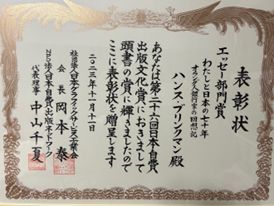 表彰状
エッセー部門賞
わたしと日本の七十年
オランダ人銀行家の回想記
ハンス・ブリンクマン 殿
あなたは第二十六回日本自費
出版文化賞におきまして
頭書の賞に輝きましたので
ここに表彰状を贈呈します
二〇二三年十一月十一日
社団法人日本グラフィックサービス工業会
会長 岡本 泰
NPO法人日本自費出版ネットワーク
代表理事 中山千夏